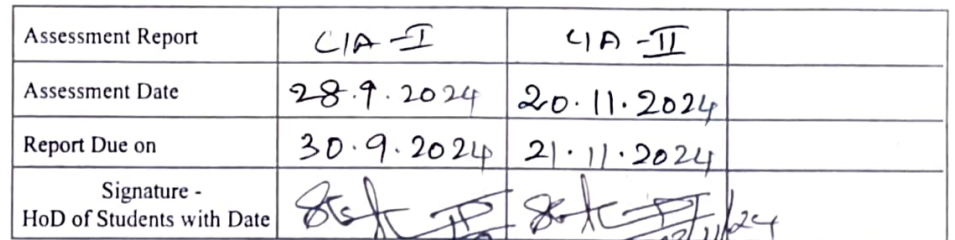 Assessment Report CIA-I CIA-II
Assessment Date 28.9.2024 20.11.2024
Report Due on 30.9.2024 21.11.2024
Signature -
HoD of Students with Date